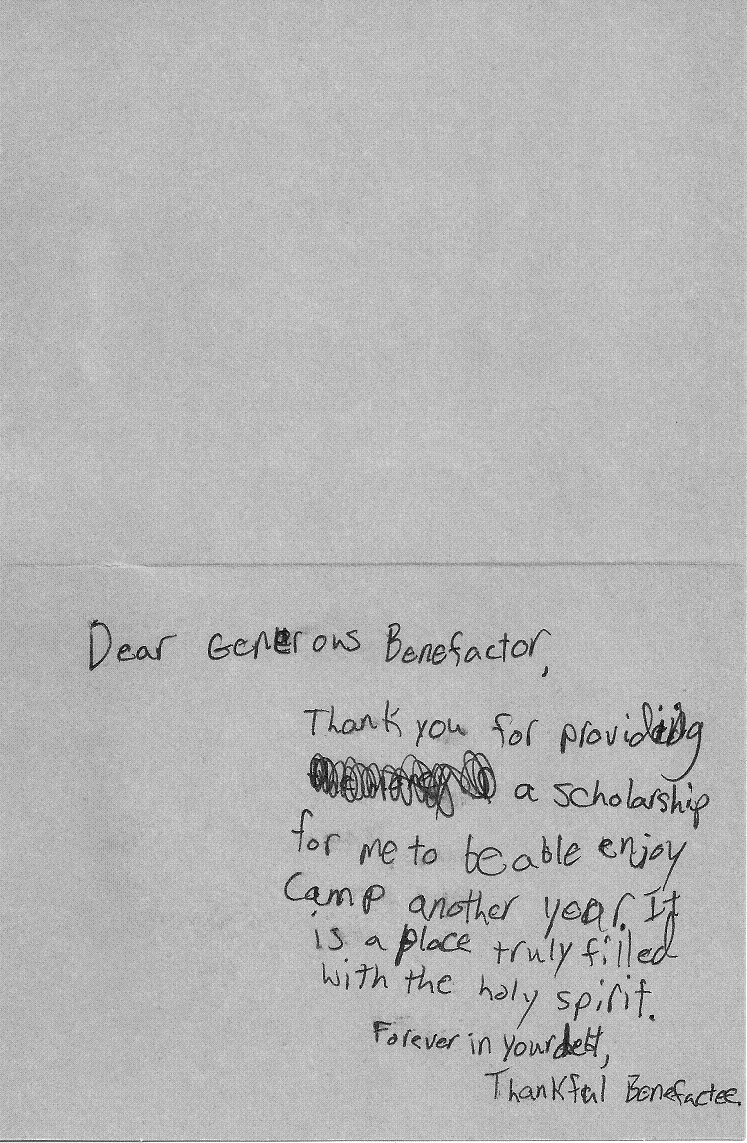 Dear Generous Benefactor,
Thank you for providing
a scholarship
for me to be able enjoy
Camp another year. It
is a place truly filled
with the holy spirit.
Forever in your debt,
Thankful Benefactee